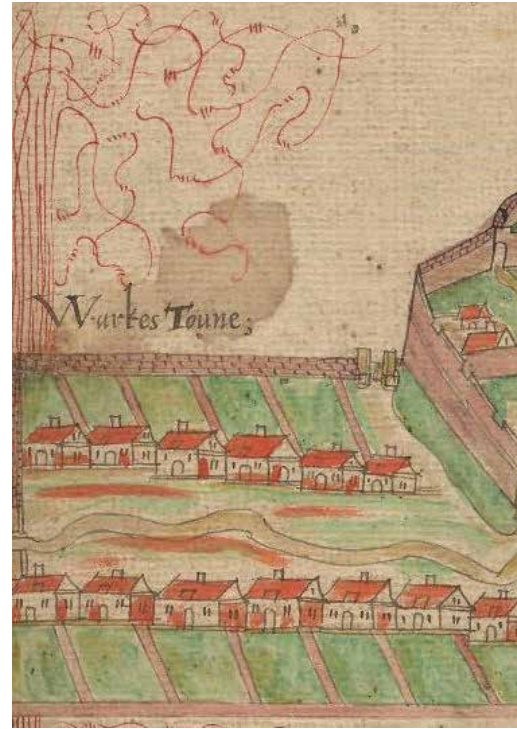 Warkes Toune;